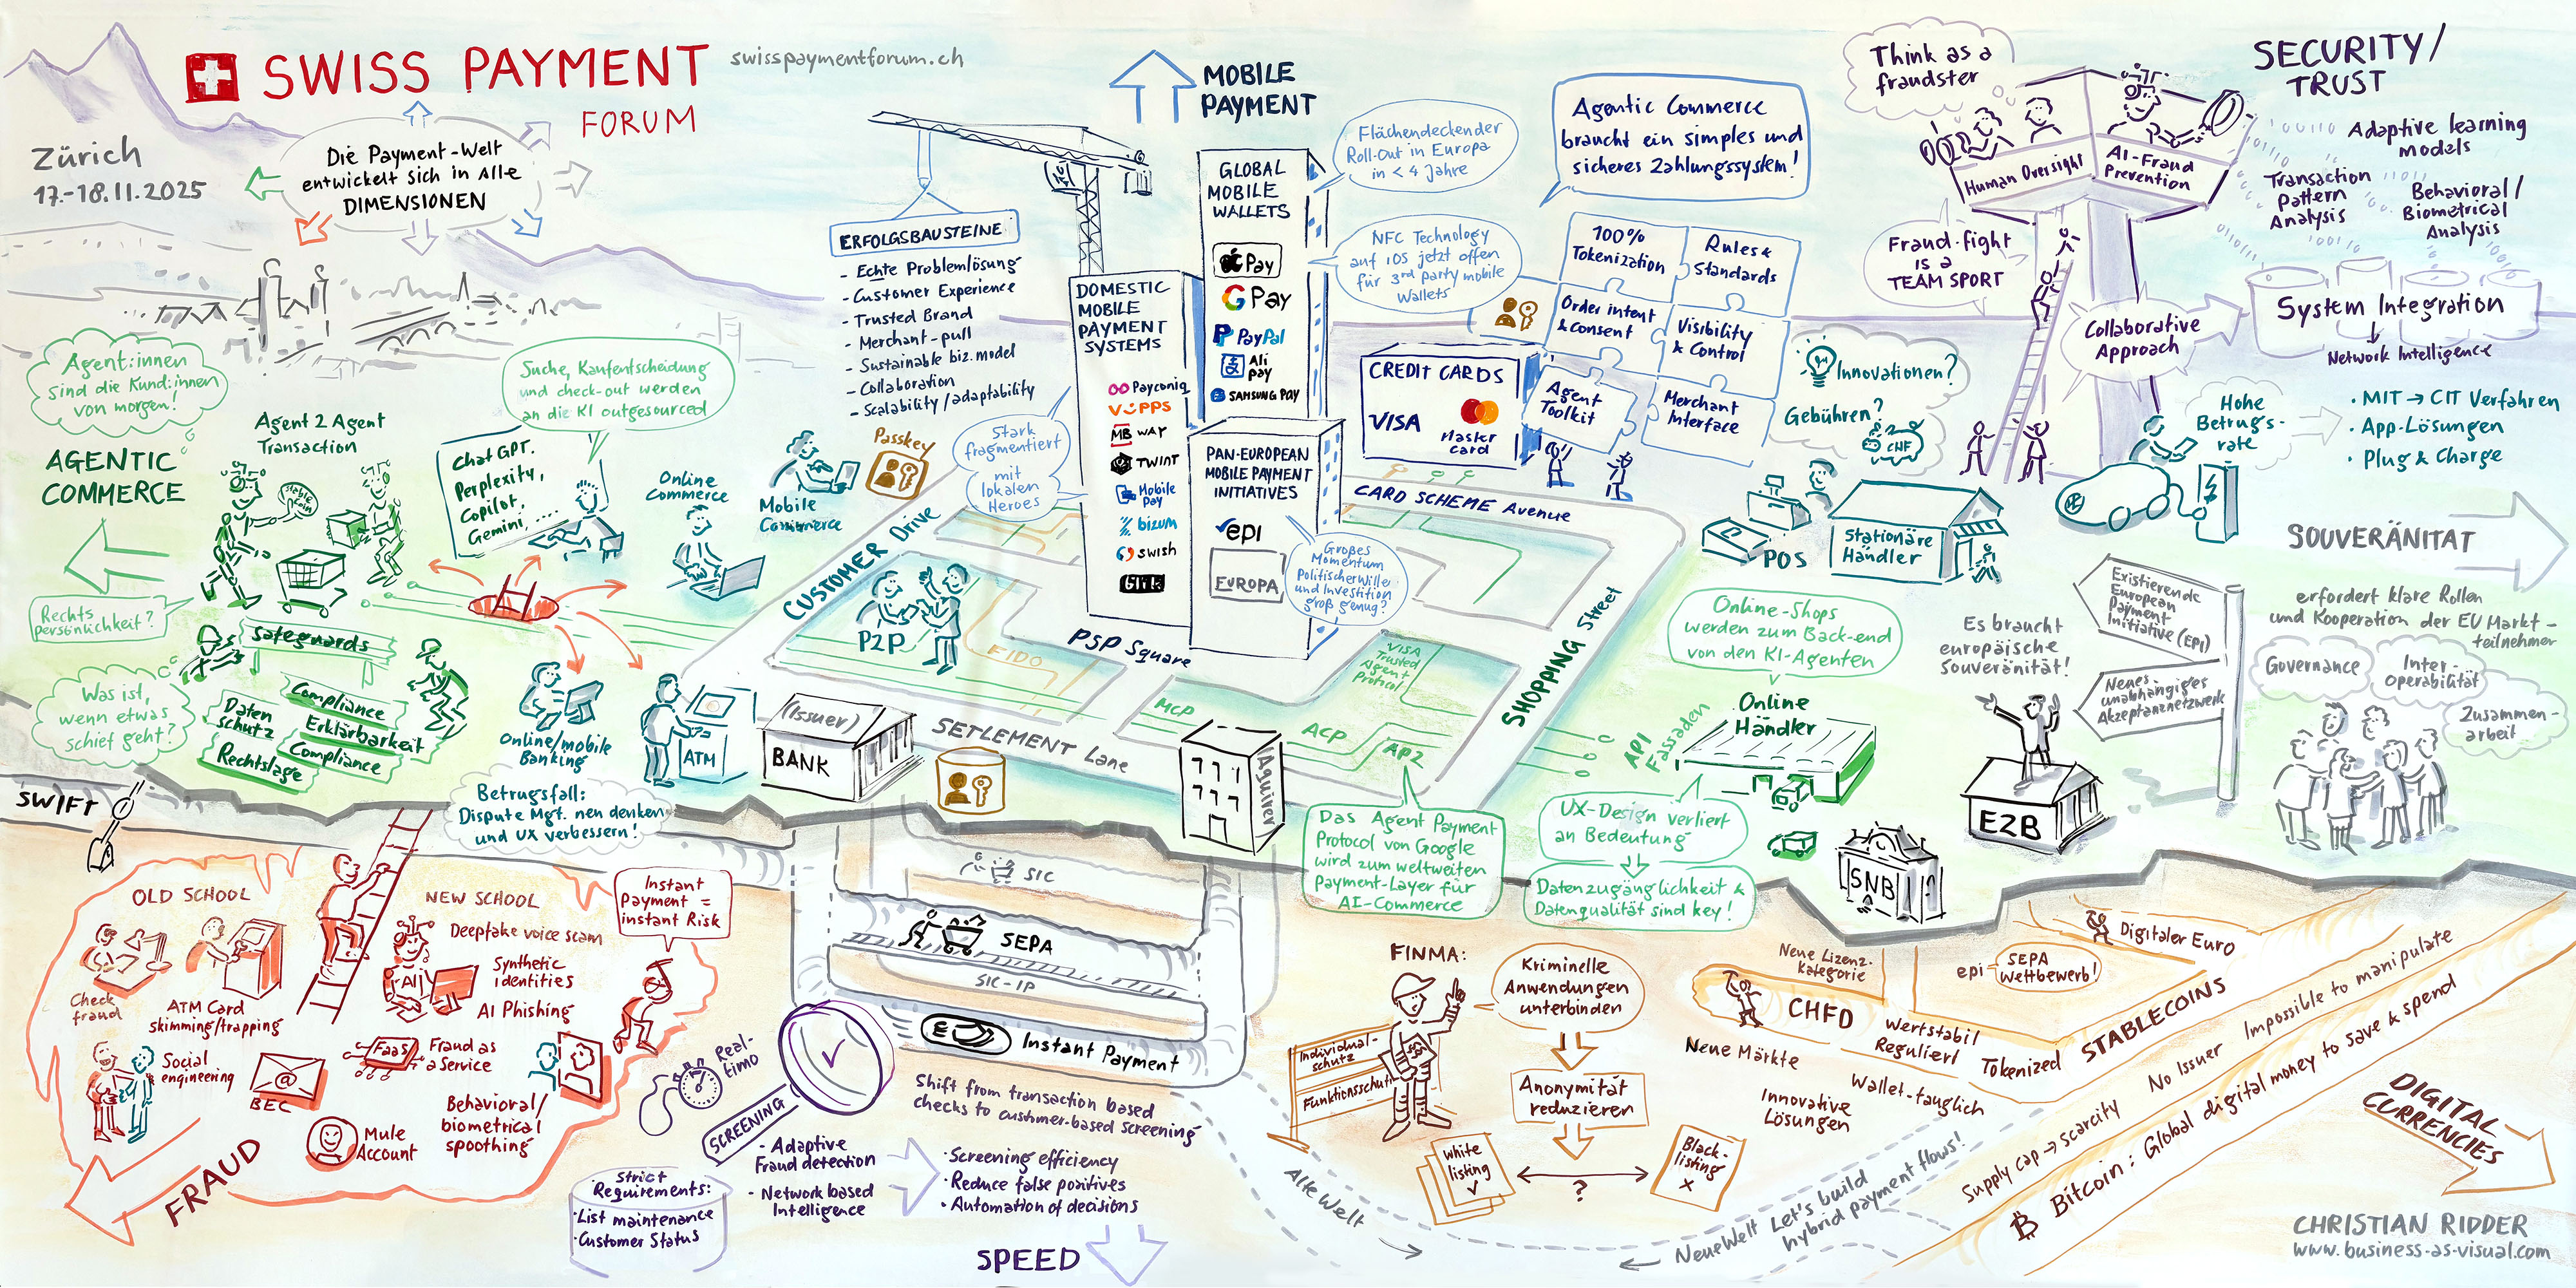 SWISS PAYMENT
FORUM
swisspaymentforum.ch
Zürich
17.-18.11.2025
Die Payment-Welt
entwickelt sich in Alle
DIMENSIONEN
MOBILE
PAYMENT
ERFOLGSBAUSTEINE
- Echte Problemlösung
- Customer Experience
- Trusted Brand
- Merchant-pull
- Sustainable biz. model
- Collaboration
- Scalability/adaptability
GLOBAL
MOBILE
WALLETS
Pay
G Pay
PayPal
Ali
pay
SAMSUNG Pay
Flächendeckender
Roll-Out in Europa
in < 4 Jahre
NFC Technology
auf iOS jetzt offen
für 3rd party mobile
Wallets
DOMESTIC
MOBILE
PAYMENT
SYSTEMS
Payconiq
VIPPS
MB WAY
TWINT
Mobile
Pay
bizum
swish
BLIK
Stark
fragmentiert
mit
lokalen
Heroes
PAN-EUROPEAN
MOBILE PAYMENT
INITIATIVES
epi
EUROPA
Großes
Momentum
Politischer Wille
und Investition
groß genug?
Agentic Commerce
braucht ein simples und
sicheres Zahlungssystem!
100%
Tokenization
Rules &
Standards
Order intent
& Consent
Visibility
& Control
Agent
Toolkit
Merchant
Interface
CREDIT CARDS
VISA
Master
card
CARD SCHEME Avenue
Innovationen?
Gebühren?
CHF
Think as a
fraudster
Human Oversight
AI-Fraud
Prevention
Fraud-fight
is a
TEAM SPORT
Collaborative
Approach
SECURITY/
TRUST
Adaptive learning
models
Transaction
Pattern
Analysis
Behavioral/
Biometrical
Analysis
System Integration
Network Intelligence
Hohe
Betrugs-
rate
• MIT → CIT Verfahren
• App-Lösungen
• Plug & Charge
POS
Stationäre
Händler
SOUVERÄNITÄT
erfordert klare Rollen
und Kooperation der EU Markt-
teilnehmer
Governance
Inter-
operabilität
Zusammen-
arbeit
Existierende
European
Payment
Initiative (EPI)
Neues
unabhängiges
Akzeptanznetzwerk
Es braucht
europäische
Souveränität!
EZB
SNB
Agent:innen
sind die Kund:innen
von morgen!
AGENTIC
COMMERCE
Agent 2 Agent
Transaction
Stable
Coin
Suche, Kaufentscheidung
und check-out werden
an die KI outgesourced
Chat GPT.
Perplexity,
Copilot,
Gemini, ....
Rechts
persönlichkeit?
safeguards
Was ist,
wenn etwas
schief geht?
Daten
schutz
Compliance
Erklärbarkeit
Rechtslage
Compliance
Online
Commerce
Mobile
Commerce
Passkey
Online/mobile
Banking
ATM
Betrugsfall:
Dispute Mgt. neu denken
und UX verbessern!
CUSTOMER Drive
P2P
FIDO
PSP Square
VISA
Trusted
Agent
Protocol
MCP
ACP
AP2
SHOPPING Street
SETLEMENT Lane
(Issuer)
BANK
Aquirer
Online-Shops
werden zum Back-end
von den KI-Agenten
Online
Händler
API
Fassaden
UX-Design verliert
an Bedeutung
Datenzugänglichkeit &
Datenqualität sind key!
Das Agent Payment
Protocol von Google
wird zum weltweiten
Payment-Layer für
AI-Commerce
SWIFT
OLD SCHOOL
Check
fraud
ATM Card
skimming/trapping
Social
engineering
BEC
NEW SCHOOL
Deepfake voice scam
AI
Synthetic
identities
AI Phishing
FaaS
Fraud as
a Service
Mule
Account
Behavioral/
biometrical
spoothing
Instant
Payment =
instant Risk
FRAUD
SIC
SEPA
SIC-IP
Instant Payment
Real-
time
SCREENING
Shift from transaction based
checks to custumer-based screening
- Adaptive
Fraud detection
- Network based
Intelligence
• Screening efficiency
• Reduce false positives
• Automation of decisions
Strict
Requirements:
• List maintenance
• Customer Status
SPEED
FINMA:
Individual-
schutz
Funktionsschutz
Kriminelle
Anwendungen
unterbinden
Anonymität
reduzieren
White
listing
?
Black-
listing
x
Alte Welt
Neue Welt
Let's build
hybrid payment flows!
Neue Lizenz-
kategorie
CHFD
Neue Märkte
Wertstabil
Reguliert
Tokenized
Wallet-tauglich
Innovative
Lösungen
STABLECOINS
epi
SEPA
Wettbewerb!
Digitaler Euro
Supply cap → scarcity
No Issuer
Impossible to manipulate
Bitcoin: Global digital money to save & spend
DIGITAL
CURRENCIES
CHRISTIAN RIDDER
www.business-as-visual.com